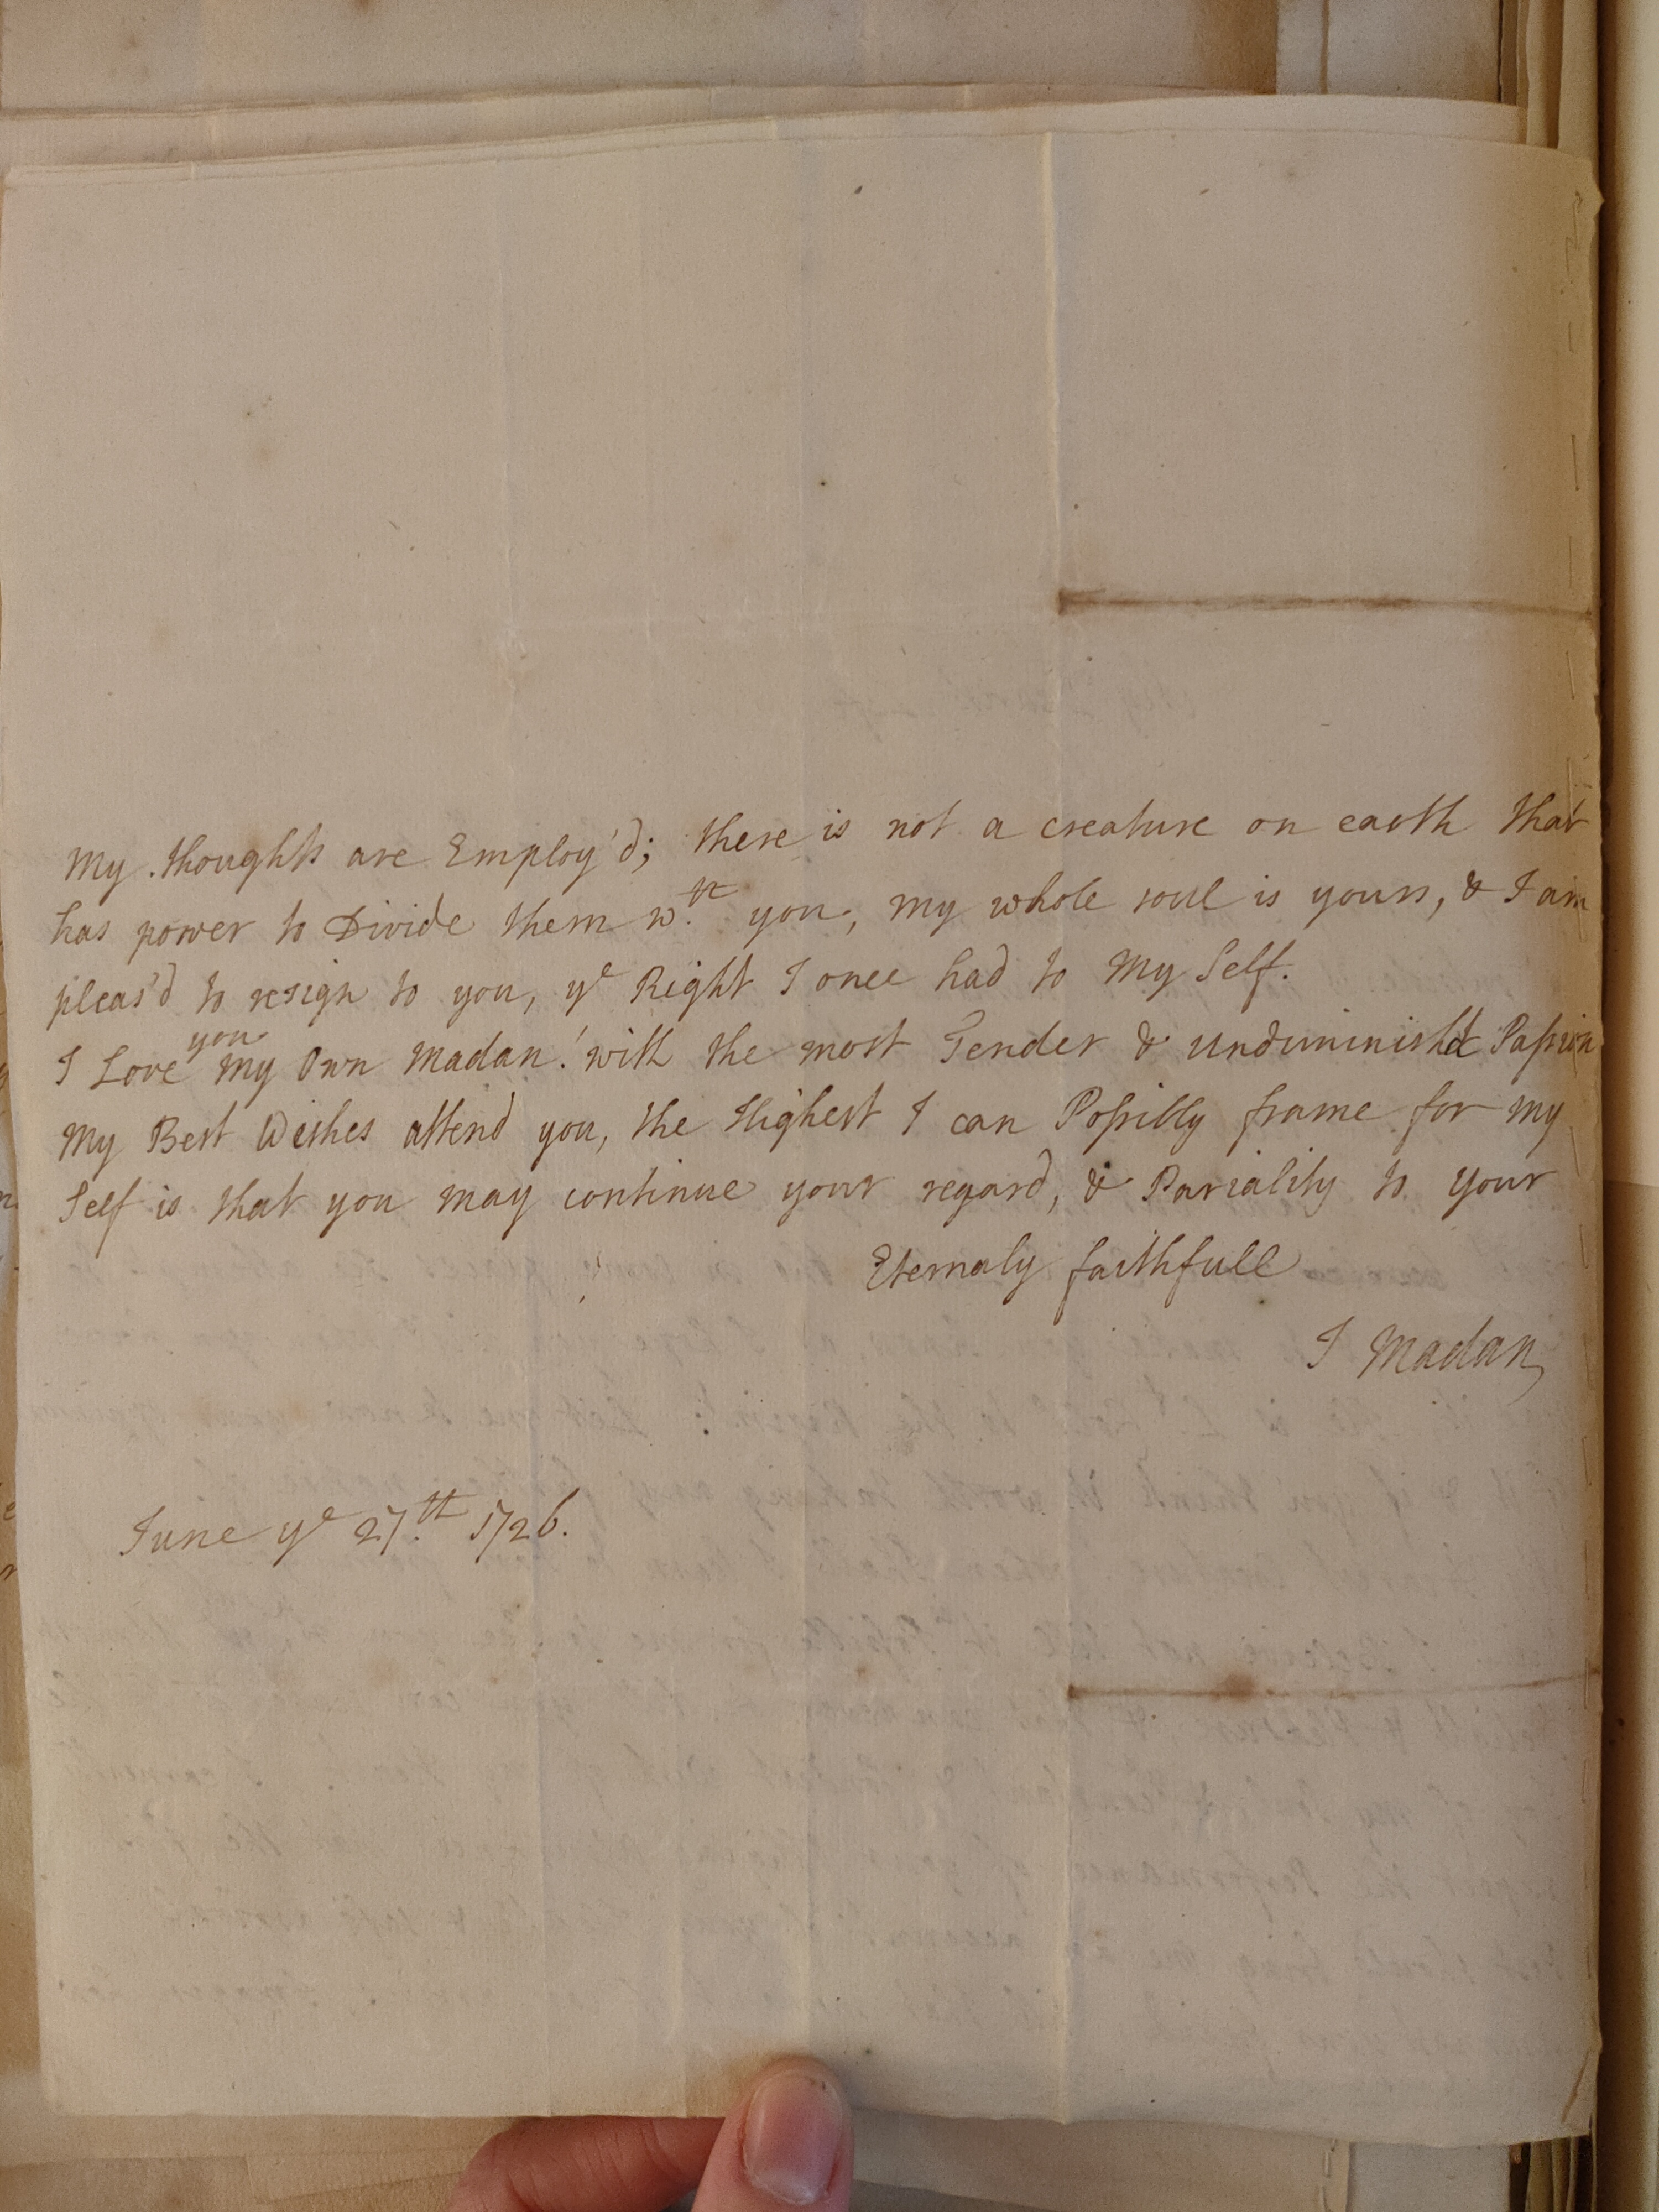 My thoughts are Employ'd; there is not a creature on earth that
has power to Divide them wth you, my whole soul is yours, & I am
pleas'd to resign to you, ye Right I once had to My Self.
I Love you my Own Madan! with the most Tender & undiminishd Passion
My Best Wishes attend you, the Highest I can Possibly frame for my
Self is that you may continue your regard, & Pariality to your
Eternaly faithfull
J Madan
June ye 27th 1726.